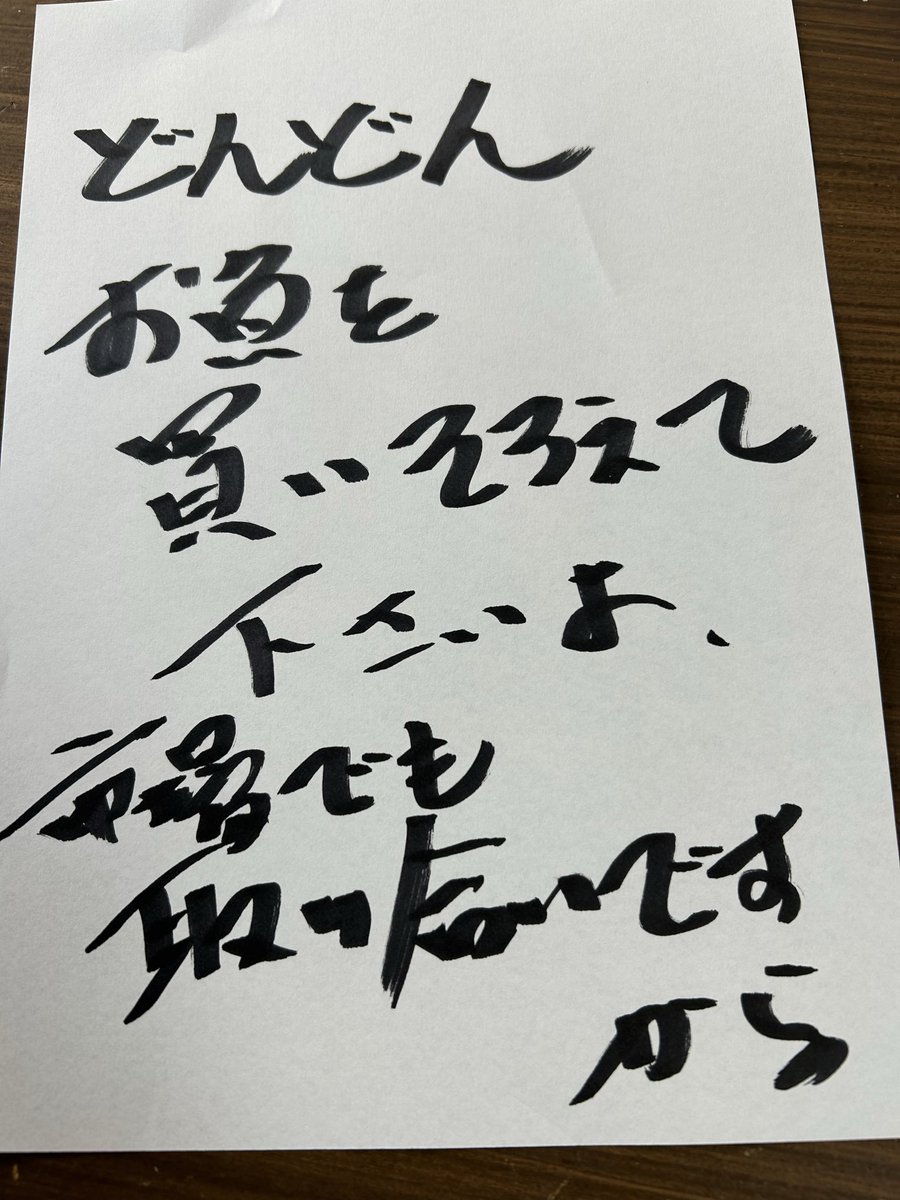 どんどん
お魚を
買いそろえて
下さいよ、
市場でも
取り合いです
から